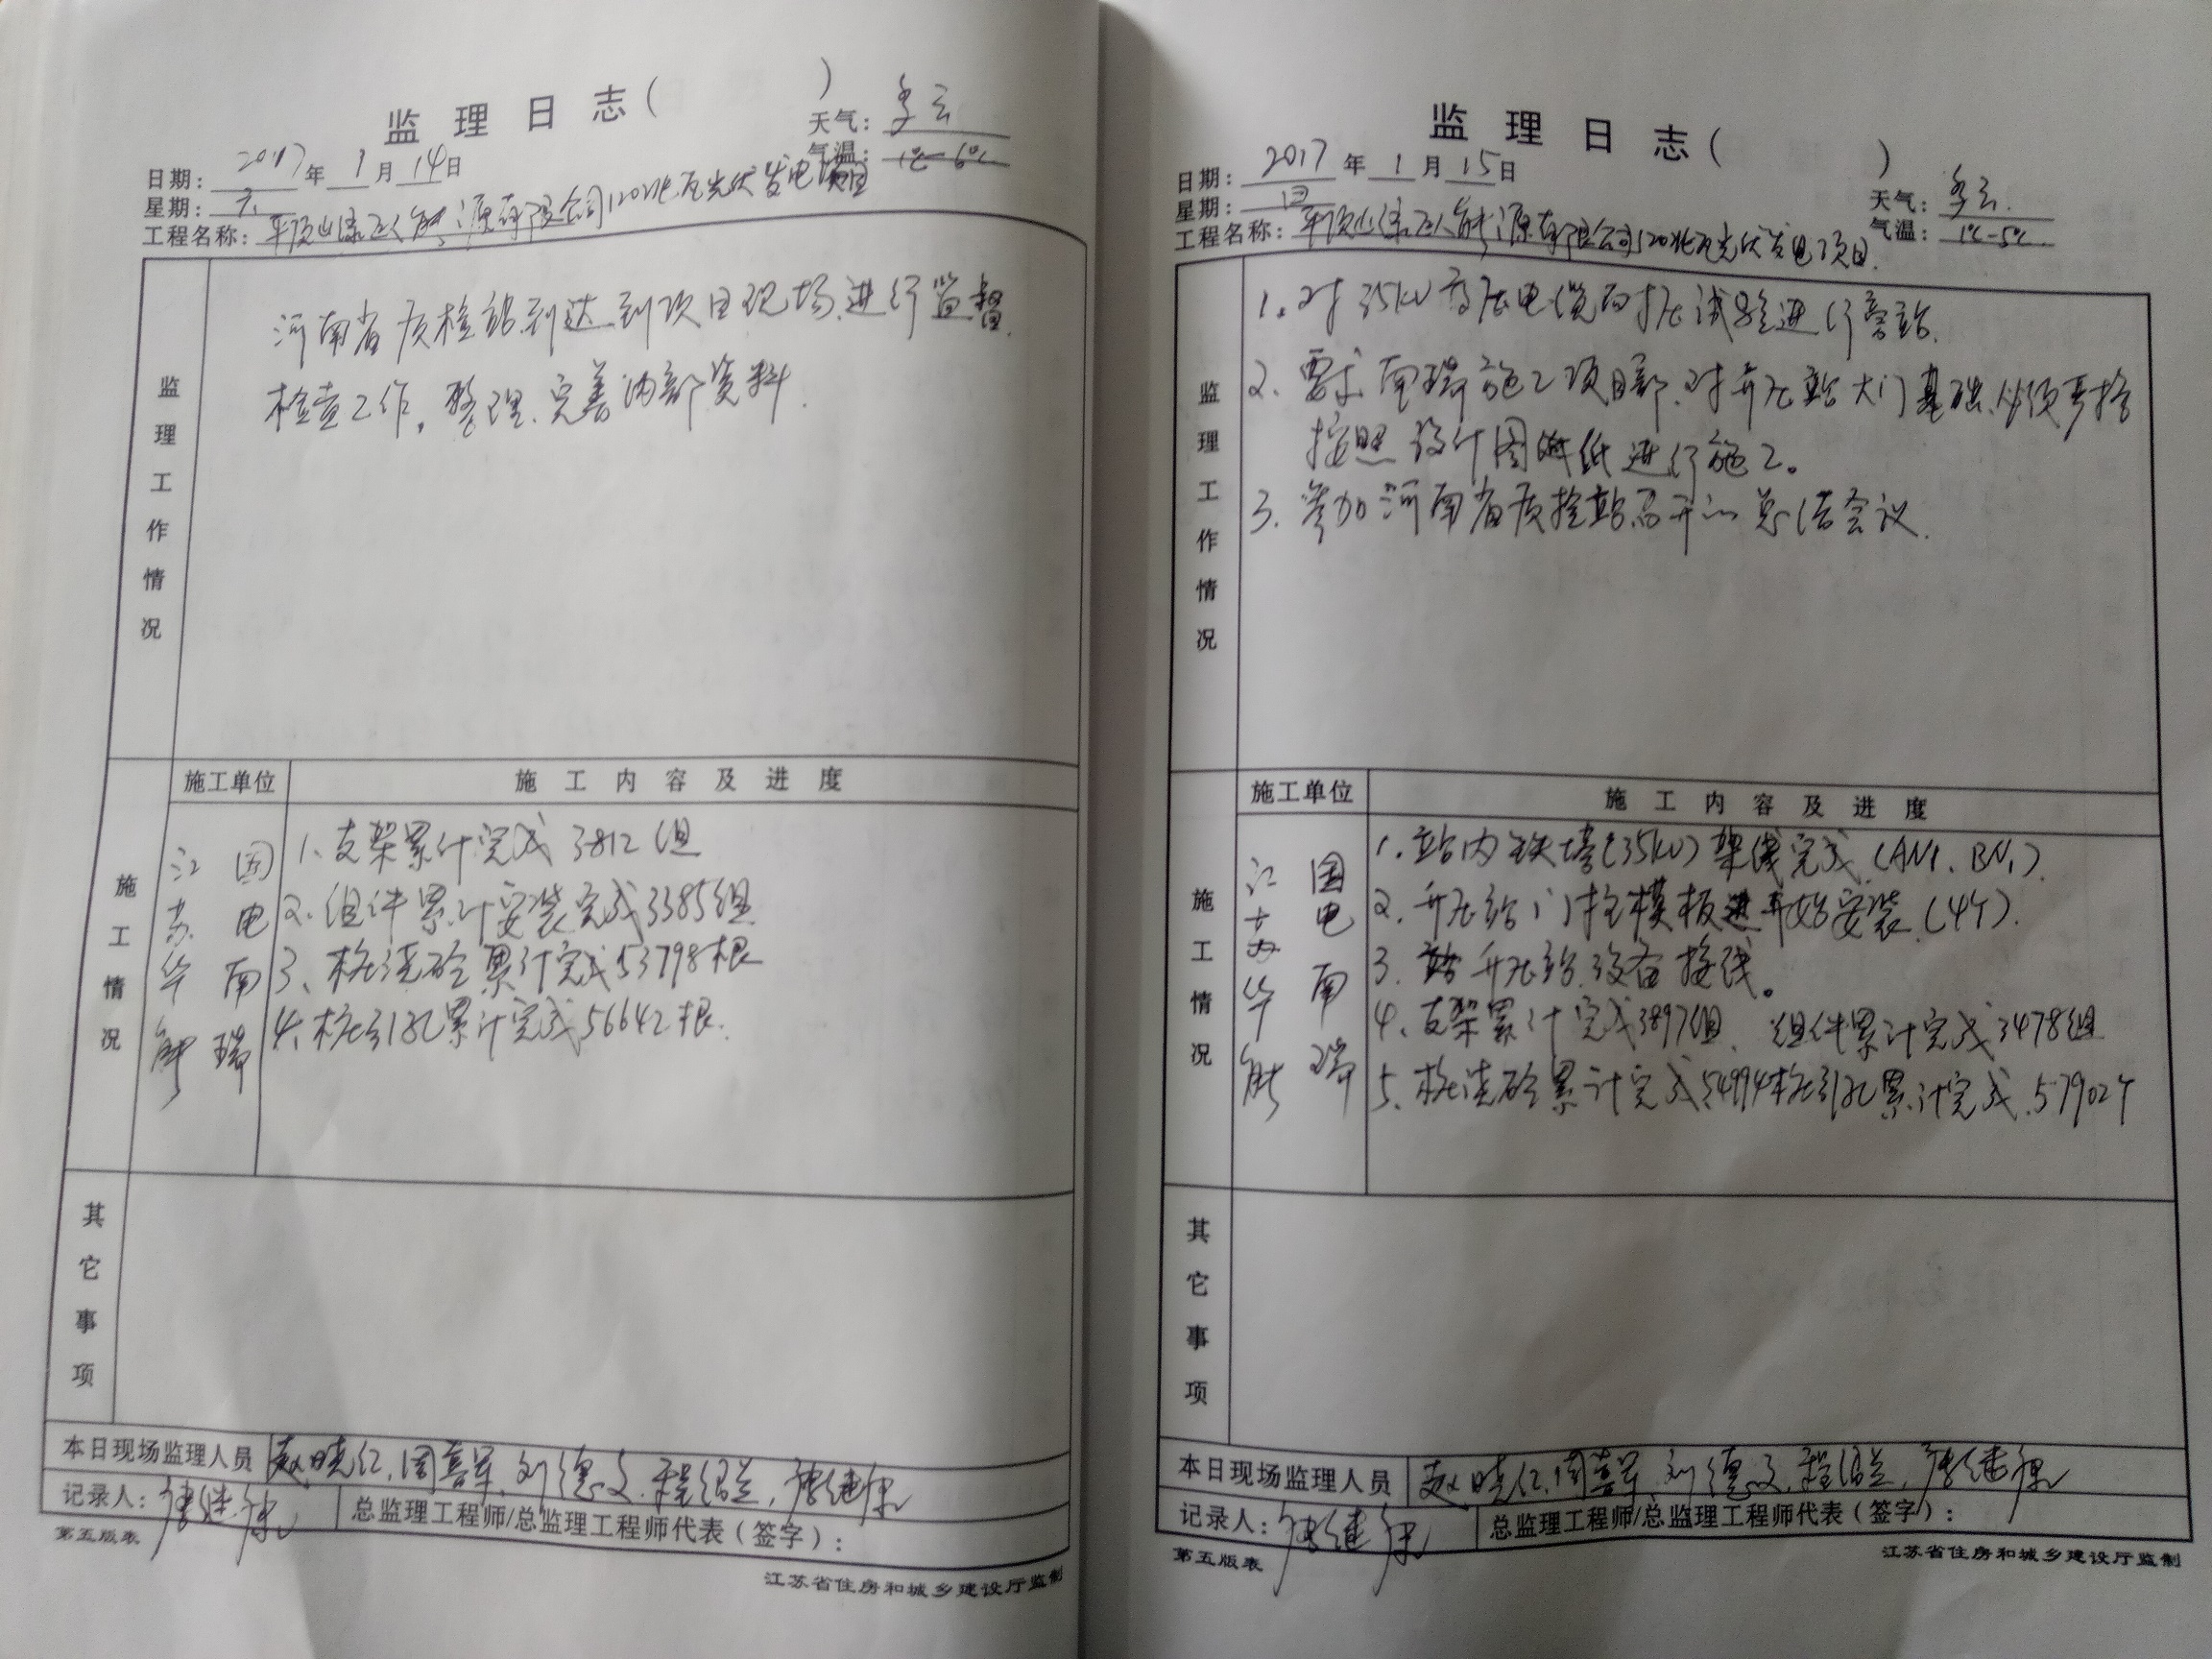 监理日志( )
天气: 多云
日期: 2017年1月14日
气温: 1℃-6℃
星期: 六
工程名称: 平顶山绿 能源有限公司120兆瓦光伏发电项目
监理工作情况
河南省质检站到达到项目现场,进行监督
检查工作。整理、完善内部资料.
施工单位 施工内容及进度
施工情况
江苏华能 国电南瑞
1、支架累计完成3812组
2、组件累计安装完成3385组
3、桩浇砼累计完成53798根
4、桩引孔累计完成56642根.
其它事项
本日现场监理人员 赵晓红,周喜军,刘德文,程绍兰,唐继
记录人: 唐继
总监理工程师/总监理工程师代表(签字):
第五版表
江苏省住房和城乡建设厅监制
监理日志( )
日期: 2017年1月15日
天气: 多云.
星期: 日
气温: 1℃-5℃
工程名称: 平顶山绿 能源有限公司120兆瓦光伏发电项目.
监理工作情况
1.对35kV高压电缆的耐压试验进行旁站.
2.要求南瑞施工项目部,对升压站大门基础,必须严格
按照设计图纸进行施工。
3.参加河南省质检站召开的总结会议.
施工单位 施工内容及进度
施工情况
江苏华能 国电南瑞
1.站内铁塔(35kV)架线完成.(AN1、BN1).
2.升压站门柱模板开始安装.(4个).
3.升压站设备接线。
4、支架累计完成3897组、组件累计完成3478组
5、桩浇砼累计完成54994桩引孔累计完成57902个
其它事项
本日现场监理人员 赵晓红,周喜军,刘德文,程绍兰,唐继
记录人: 唐继
总监理工程师/总监理工程师代表(签字):
第五版表
江苏省住房和城乡建设厅监制